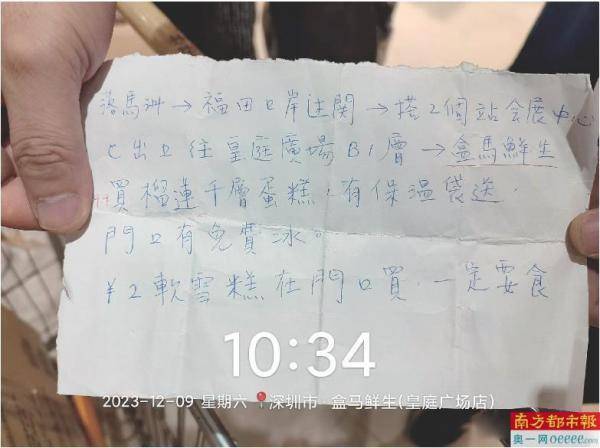 落馬洲→福田口岸过関→搭2個站会展中心
C出口往皇庭廣場B1層→盒馬鮮生
買榴蓮千層蛋糕，有保溫袋送，
門口有免費冰。
¥2軟雪糕在門口買，一定要食
10:34
2023-12-09 星期六 深圳市·盒马鲜生(皇庭广场店)
南方都市報
奥一网oeeee.com